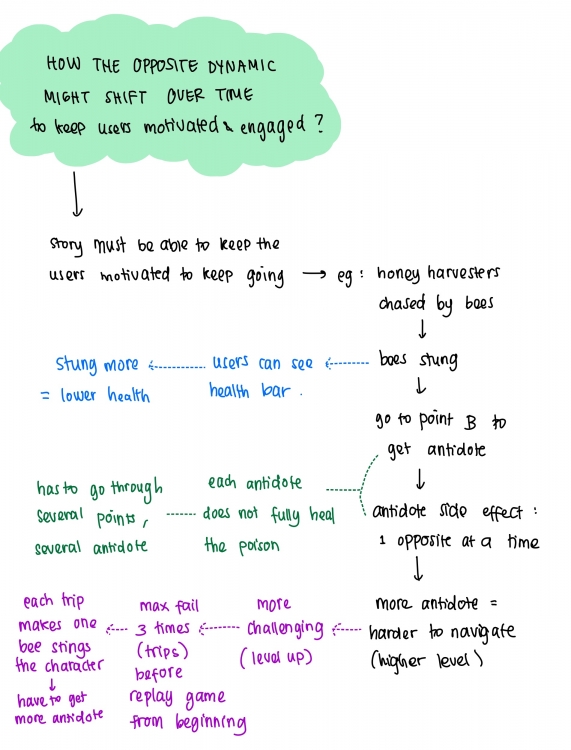 HOW THE OPPOSITE DYNAMIC
MIGHT SHIFT OVER TIME
to keep users motivated & engaged ?
story must be able to keep the
users motivated to keep going → eg : honey harvesters
chased by bees
bees stung
users can see
health bar .
stung more
= lower health
go to point B to
get antidote
antidote side effect :
1 opposite at a time
each antidote
does not fully heal
the poison
has to go through
several points ,
several antidote
more antidote =
harder to navigate
(higher level)
more
challenging
(level up)
max fail
3 times
(trips)
before
replay game
from beginning
each trip
makes one
bee stings
the character
have to get
more antidote